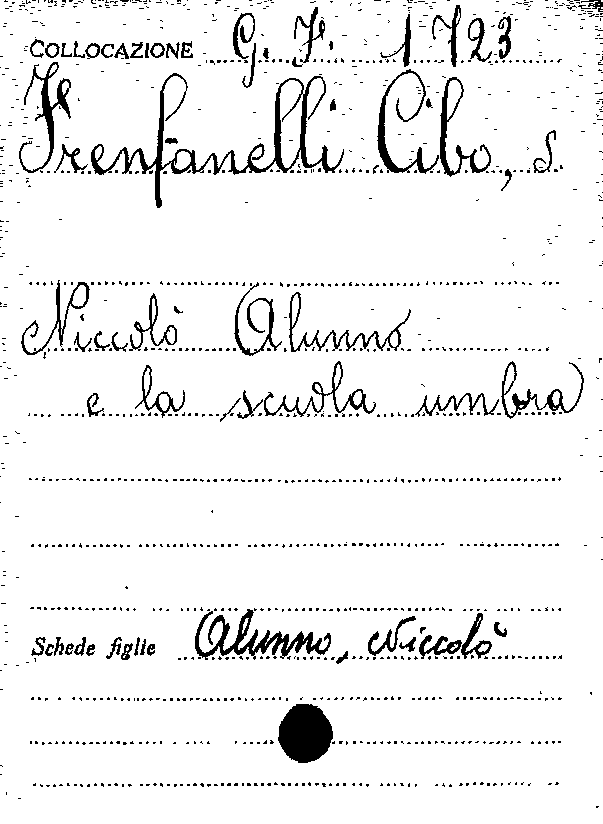 COLLOCAZIONE G. F. 1723
Frenfanelli Cibo, s.
Niccolò Alunno
e la scuola umbra
Schede figlie Alunno, Niccolò